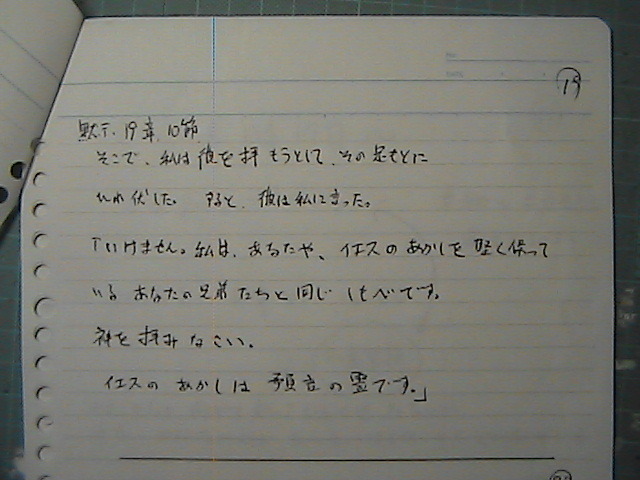 19
黙示、19章、10節
そこで、私は彼を拝もうとして、その足もとに
ひれ伏した。すると、彼は私に言った。
「いけません。私は、あなたや、イエスのあかしを堅く保って
いるあなたの兄弟たちと同じしもべです。
神を拝みなさい。
イエスのあかしは預言の霊です。」